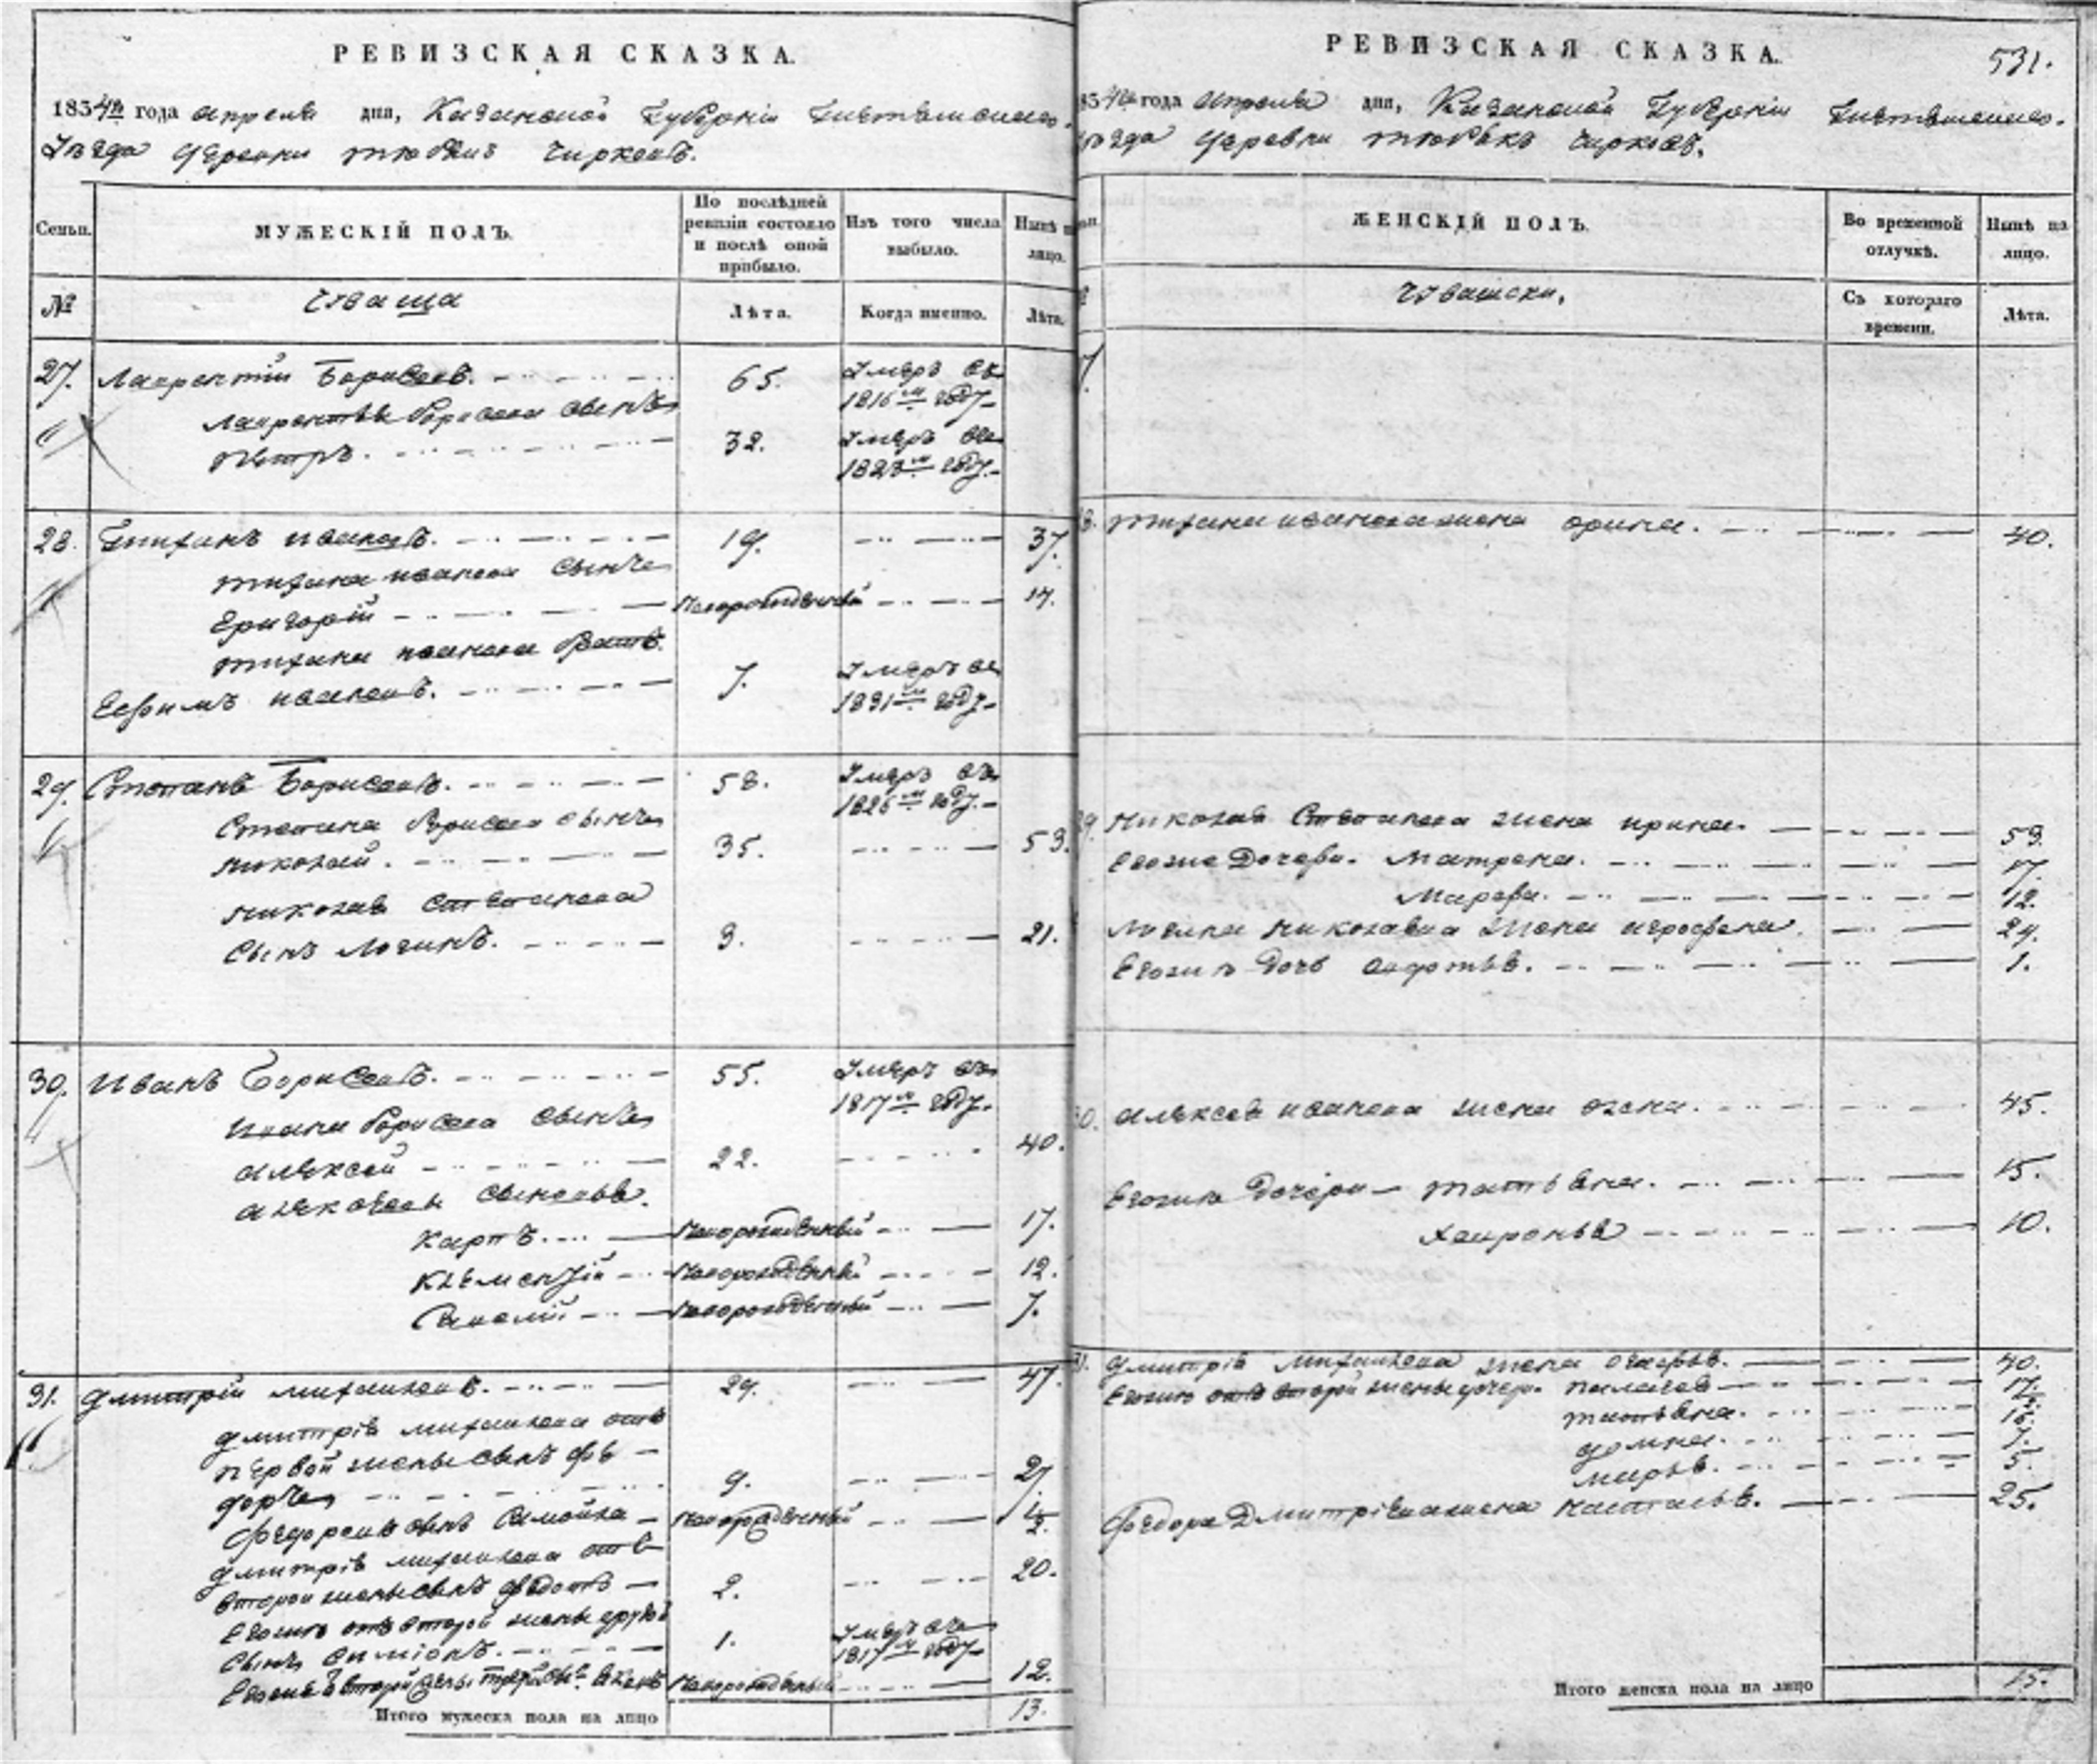 РЕВИЗСКАЯ СКАЗКА.
1834го года апреля дня, Казанской Губернiи
Уезда деревни Чиркеевъ.
Семьи.
МУЖЕСКІЙ ПОЛЪ.
По послѣдней ревизіи состояло и послѣ оной прибыло.
Изъ того числа выбыло.
Нынѣ на лицо.
№
Чуваша
Лѣта.
Когда именно.
Лѣта.
27. Лаврентiй Борисовъ. 65. Умеръ въ 1816м году
Лаврентья Борисова сынъ
Петръ. 32. Умеръ въ 1823м году.
28. Тиханъ Ивановъ. 19. 37.
Тихана Иванова сынъ
Григорiй новорожденный 14.
Тихана Иванова братъ
Ефимъ Ивановъ. 7. Умеръ въ 1831м году
29. Степанъ Борисовъ. 58. Умеръ въ 1826м году.
Степана Борисова сынъ
Николай. 35. 53.
Николая Степанова
сынъ Логинъ. 3. 21.
30. Иванъ Борисовъ. 55. Умеръ въ 1817м году.
Ивана Борисова сынъ
Алексей 22. 40.
Алексея сыновья.
Карпъ. новорожденный 17.
Климентiй новорожденный 12.
новорожденный 7.
31. Дмитрiй Михайловъ. 29. 47.
Дмитрiя Михайлова отъ
первой жены сынъ Фе-
доръ 9. 27.
Федоровъ сынъ Самойла новорожденный
Дмитрiя Михайлова отъ
второй жены сынъ Федотъ 2. 20.
Евоже отъ второй жены другой
сынъ Симiонъ. 1. Умеръ въ 1817м году
новорожденный 12.
Итого мужеска пола на лицо 13.
РЕВИЗСКАЯ СКАЗКА.
531.
года апреля дня, Казанской Губернiи
деревни Чиркеевъ.
ЖЕНСКІЙ ПОЛЪ.
Во временной отлучкѣ.
Нынѣ на лицо.
Чувашски.
Съ котораго времени.
Лѣта.
Тихана Иванова жена Орина. 40.
Николая Степанова жена Ирина. 53.
Евоже дочери. Матрена. 17.
Марфа. 12.
Логина Николаева жена 24.
дочь Авдотья. 1.
Алексея Иванова жена Олена. 45.
дочери Татьяна. 15.
Хавронья 10.
31. Дмитрiя Михайлова жена 40.
Евоже отъ второй жены дочери. Палагея 17.
Татьяна.
Домна. 7.
Марья. 5.
Федора Дмитрiева жена Настасья. 25.
Итого женска пола на лицо 15.